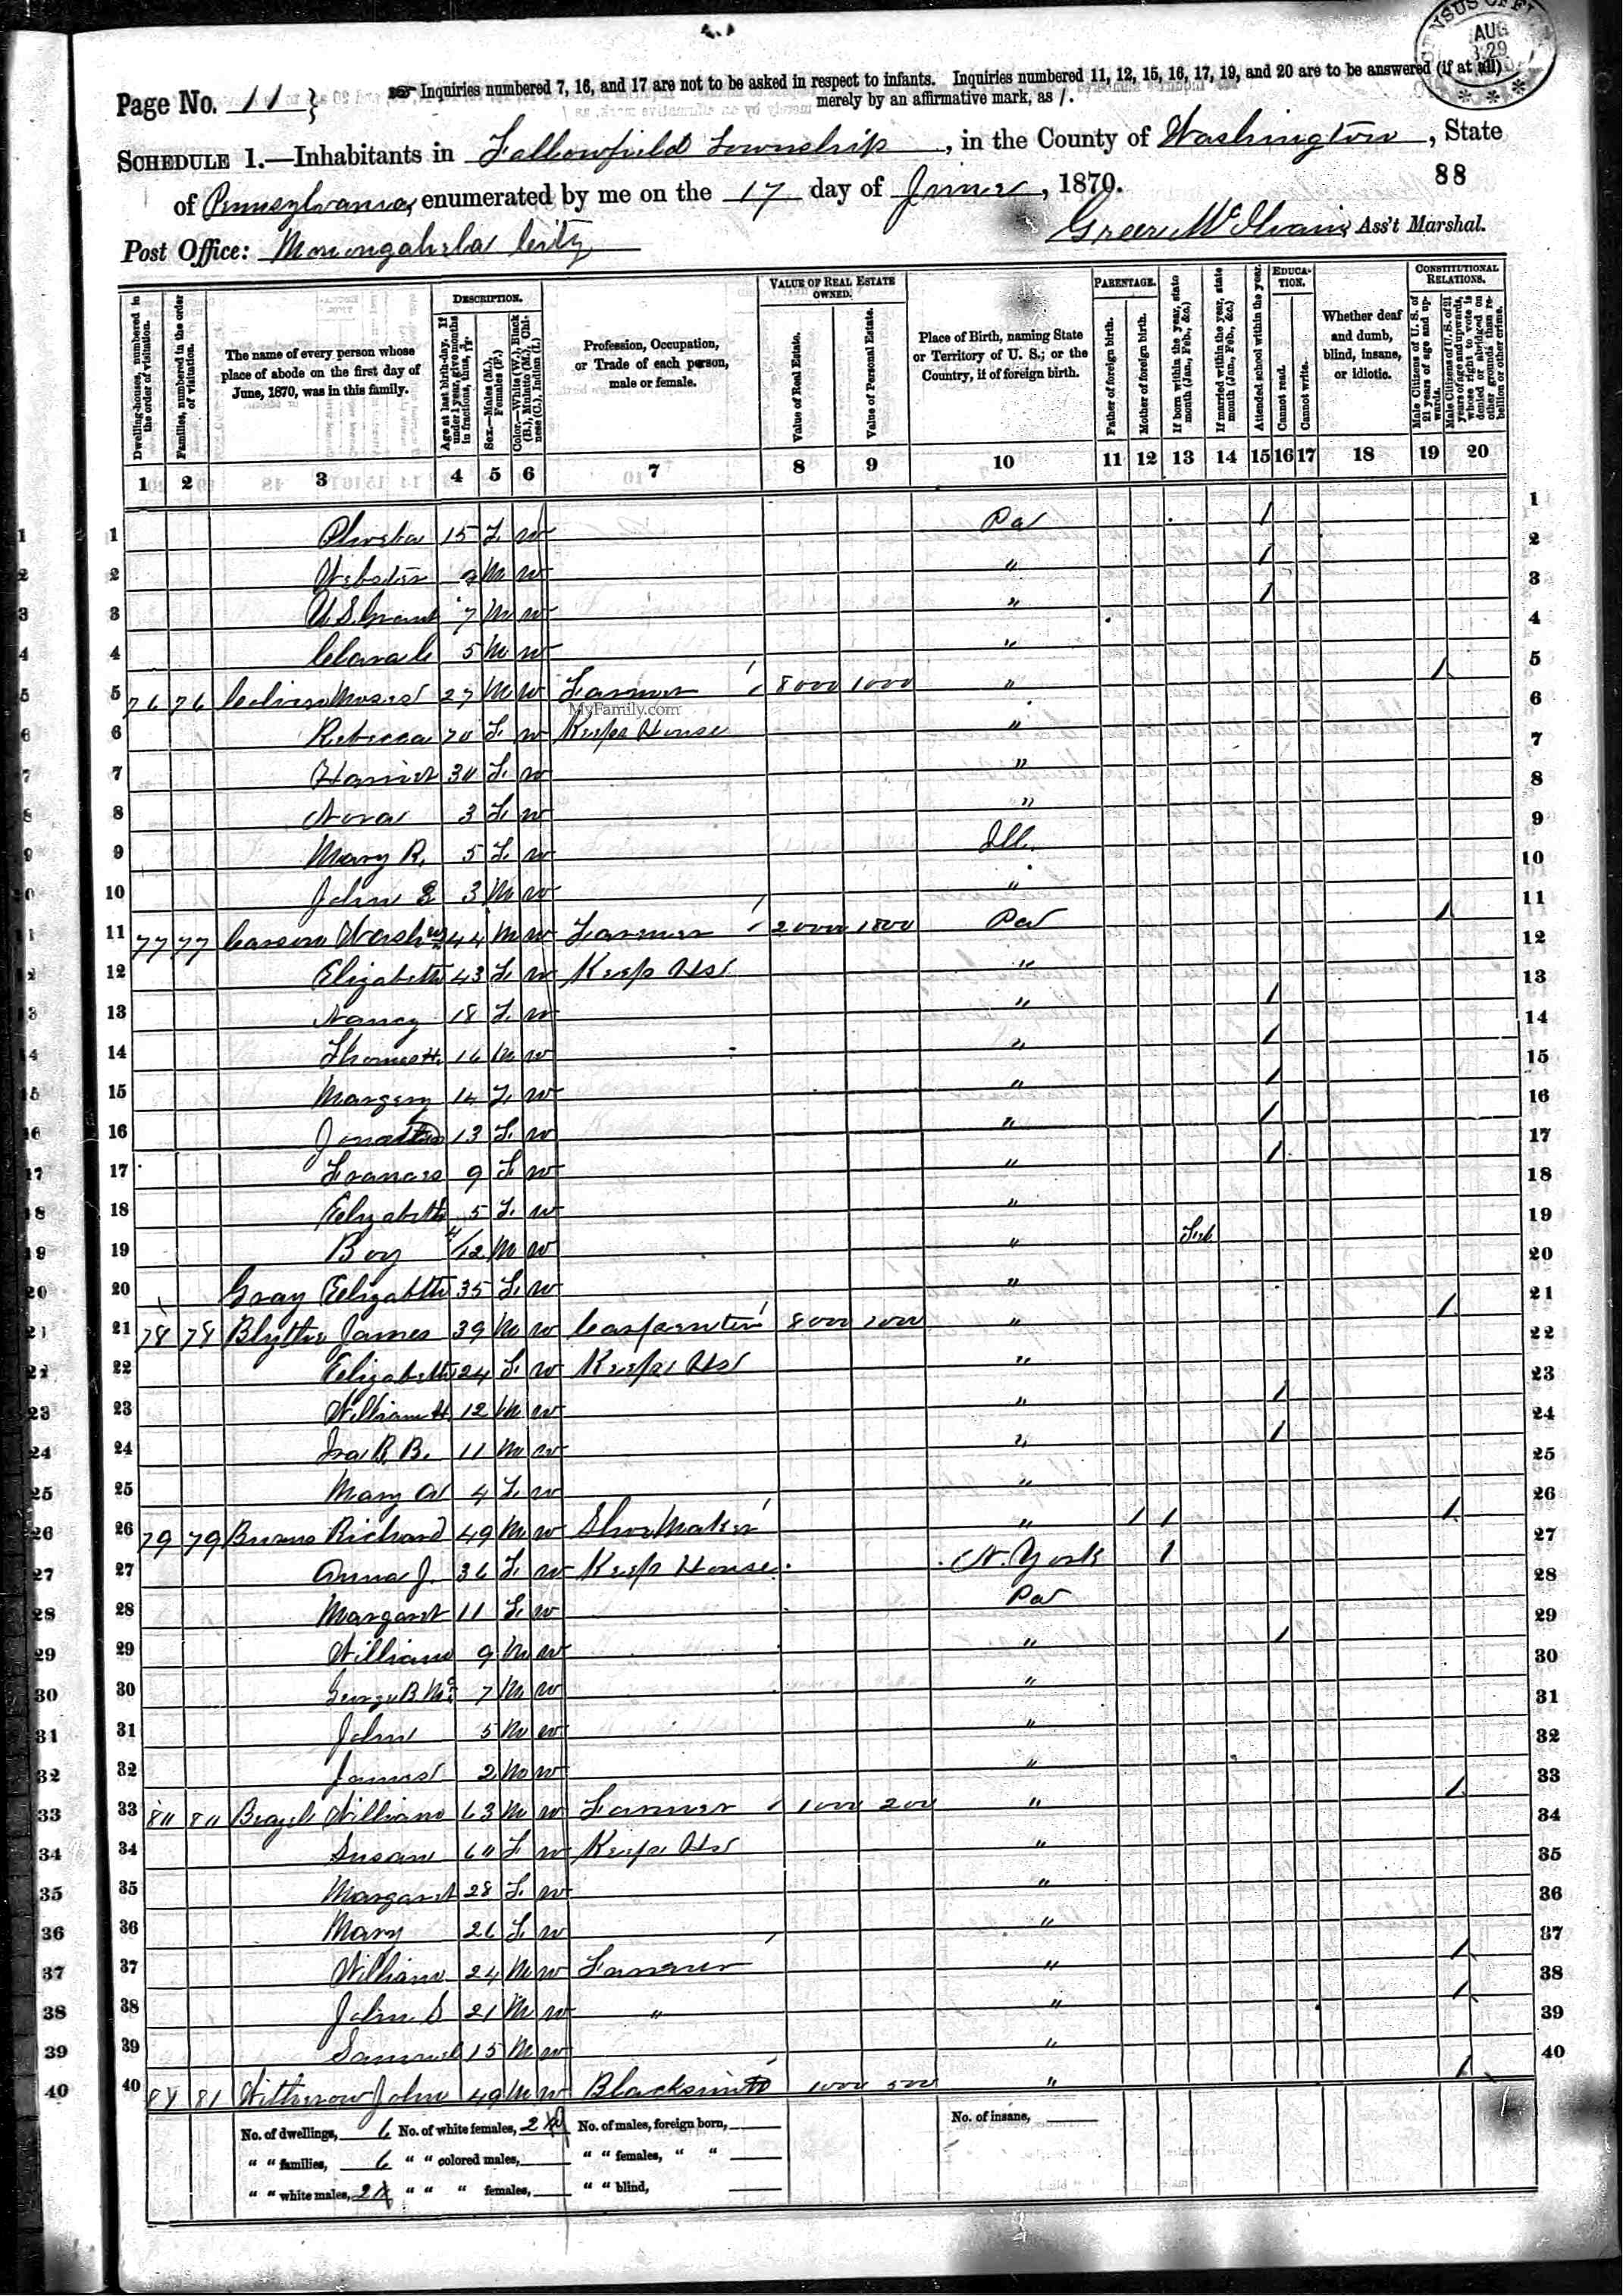 CENSUS OFFICE
AUG
29
Page No. 11
Inquiries numbered 7, 16, and 17 are not to be asked in respect to infants. Inquiries numbered 11, 12, 15, 16, 17, 19, and 20 are to be answered (if at all)
merely by an affirmative mark, as /.
SCHEDULE 1.—Inhabitants in Fallowfield Township, in the County of Washington, State
of Pennsylvania, enumerated by me on the 17 day of June, 1870.
88
Post Office: Monongahela City
Ass't Marshal.
Dwelling-houses, numbered in the order of visitation.
Families, numbered in the order of visitation.
The name of every person whose place of abode on the first day of June, 1870, was in this family.
DESCRIPTION.
Age at last birth-day. If under 1 year, give months in fractions, thus,
Sex.—Males (M.), Females (F.)
Color.—White (W.), Black (B.), Mulatto (M.), Chinese (C.), Indian (I.)
Profession, Occupation, or Trade of each person, male or female.
VALUE OF REAL ESTATE OWNED.
Value of Real Estate.
Value of Personal Estate.
Place of Birth, naming State or Territory of U. S.; or the Country, if of foreign birth.
PARENTAGE.
Father of foreign birth.
Mother of foreign birth.
If born within the year, state month (Jan., Feb., &c.)
If married within the year, state month (Jan., Feb., &c.)
Attended school within the year.
EDUCATION.
Cannot read.
Cannot write.
Whether deaf and dumb, blind, insane, or idiotic.
CONSTITUTIONAL RELATIONS.
Male Citizens of U. S. of 21 years of age and upwards.
Male Citizens of U. S. of 21 years of age and upwards, whose right to vote is denied or abridged on other grounds than rebellion or other crime.
1 2 3 4 5 6 7 8 9 10 11 12 13 14 15 16 17 18 19 20
1 15 F W Pa /
2 Webster M W " /
3 U. S. Grant 7 M W " /
4 Clara C 5 M W "
5 76 76 Moses 27 M W Farmer 8000 1000 " /
MyFamily.com
6 Rebecca 70 F W Keeps House "
7 Harriet 30 F W "
8 Nora 3 F W "
9 Mary R. 5 F W Ill.
10 John E 3 M W "
11 77 77 Carson 44 M W Farmer 20000 1800 Pa /
12 Elizabeth 43 F W Keeps Hs "
13 Nancy 18 F W " /
14 Thomas H. 16 M W " /
15 Margery 14 F W " /
16 13 F W " /
17 Frances 9 F W " /
18 Elizabeth 5 F W "
19 Boy 4/12 M W " Feb
20 Gray Elizabeth 35 F W "
21 78 78 Blythe James 39 M W Carpenter 8000 1000 " /
22 Elizabeth 24 F W Keeps Hs "
23 William H. 12 M W " /
24 Ira R. B. 11 M W " /
25 Mary A 4 F W "
26 79 79 Burns Richard 49 M W Shoe Maker " / / /
27 Anna J. 36 F W Keeps House N. York /
28 Margaret 11 F W Pa
29 William 9 M W " /
30 George B. Mc. 7 M W "
31 John 5 M W "
32 James 2 M W "
33 80 80 William 63 M W Farmer 1000 200 " /
34 Susan 60 F W Keeps Hs "
35 Margaret 28 F W "
36 Mary 26 F W "
37 William 24 M W Farmer " /
38 John S 21 M W " " /
39 Samuel 15 M W "
40 81 81 Witherow John 49 M W Blacksmith 1000 500 " /
No. of dwellings, 6 No. of white females, No. of males, foreign born, No. of insane,
" " families, 6 " " colored males, " " females, " "
" " white males, " " " females, " " blind,